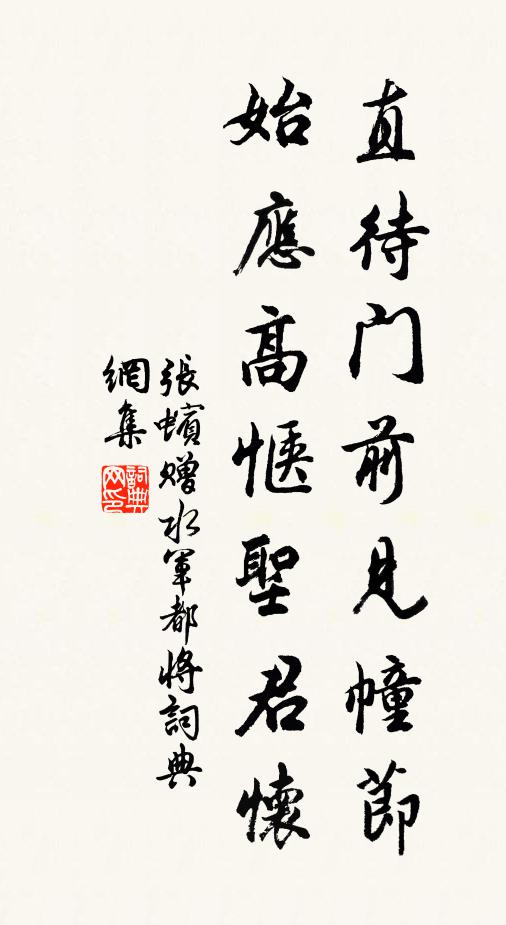 直待門前見幢節
始應高愜聖君懷
張蠙贈水軍都將詞典
網集
詞典網印